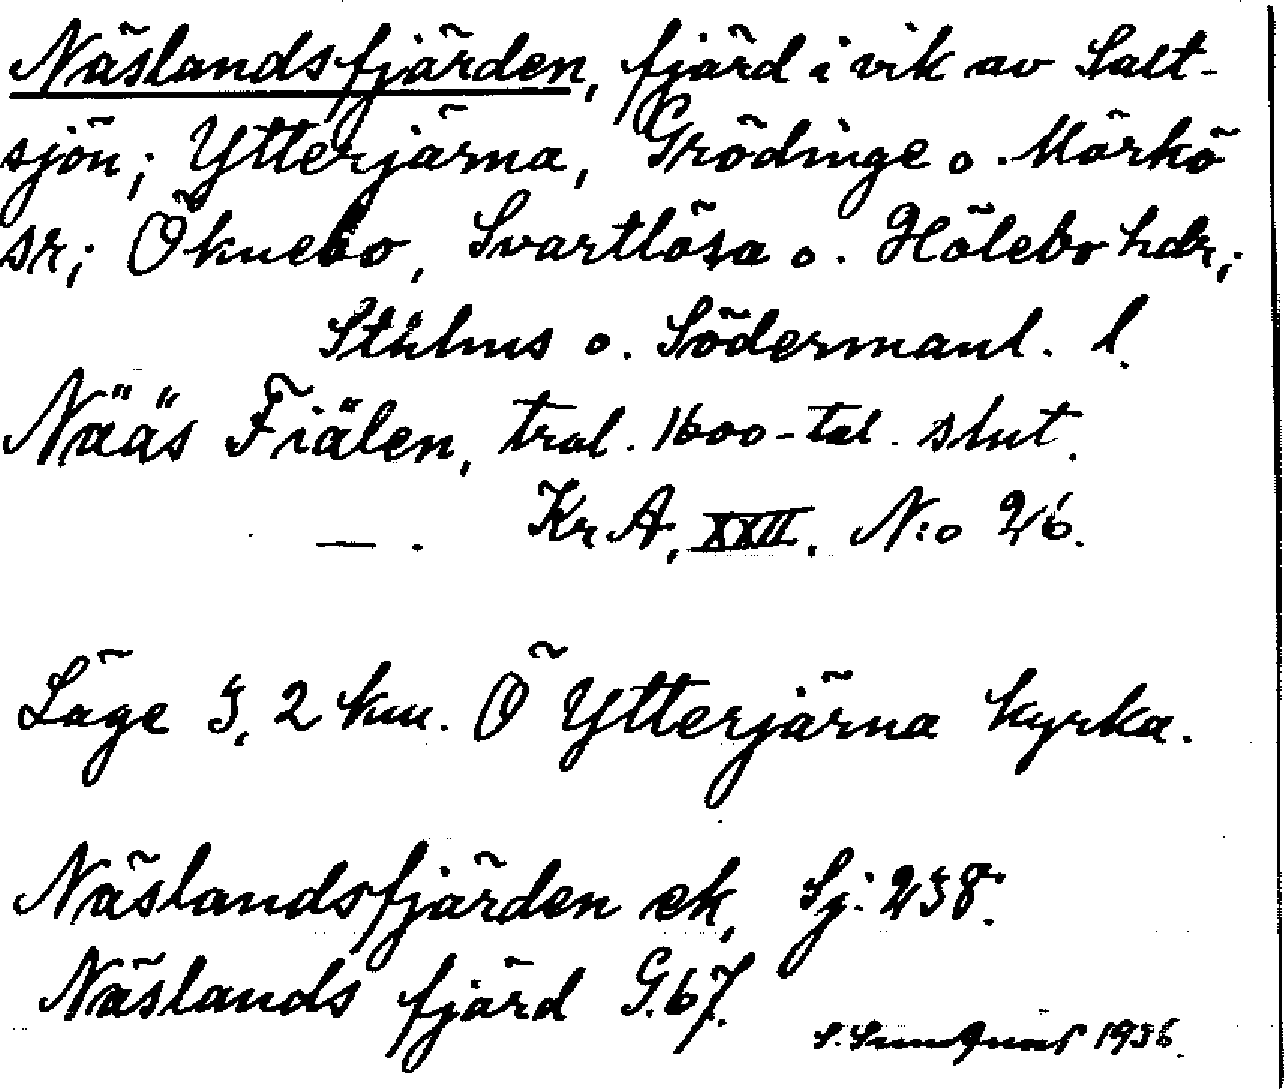 Näslandsfjärden, fjärd i vik av Salt-
sjön; Ytterjärna, Grödinge o. Mörkö
sr; Öknebo, Svartlösa o. Hölebo hdr;
Sthlms o. Södermanl. l.
Nääs Fiälen, tral. 1600-tal. slut.
— . Kr A, XXII. N:o 26.
Läge 3,2 km. Ö Ytterjärna kyrka.
Näslandsfjärden ek, Sj: 238.
Näslands fjärd G.67.
S. Sundquist 1936.